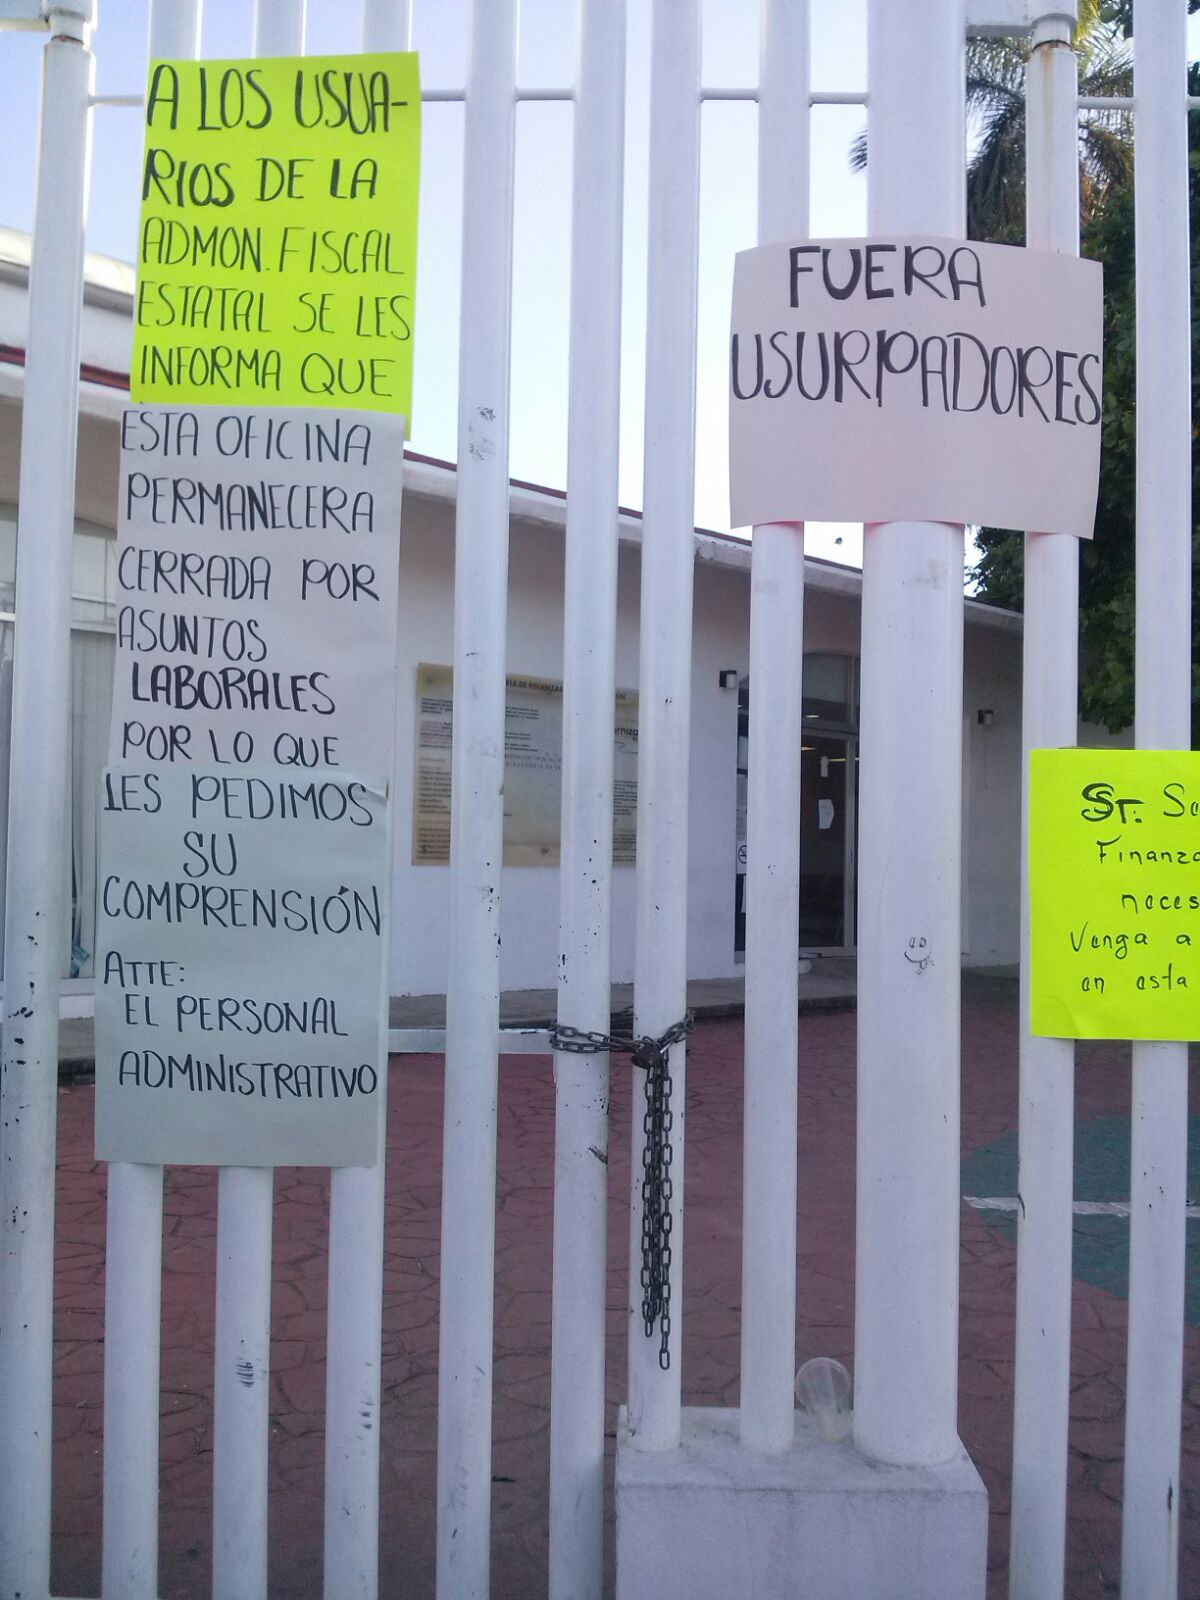 A LOS USUA-
RIOS DE LA
ADMON. FISCAL
ESTATAL SE LES
INFORMA QUE
ESTA OFICINA
PERMANECERA
CERRADA POR
ASUNTOS
LABORALES
POR LO QUE
LES PEDIMOS
SU
COMPRENSIÓN
ATTE:
EL PERSONAL
ADMINISTRATIVO
FUERA
USURPADORES
RIA DE FINANZAS
Sr.
Venga a
en esta